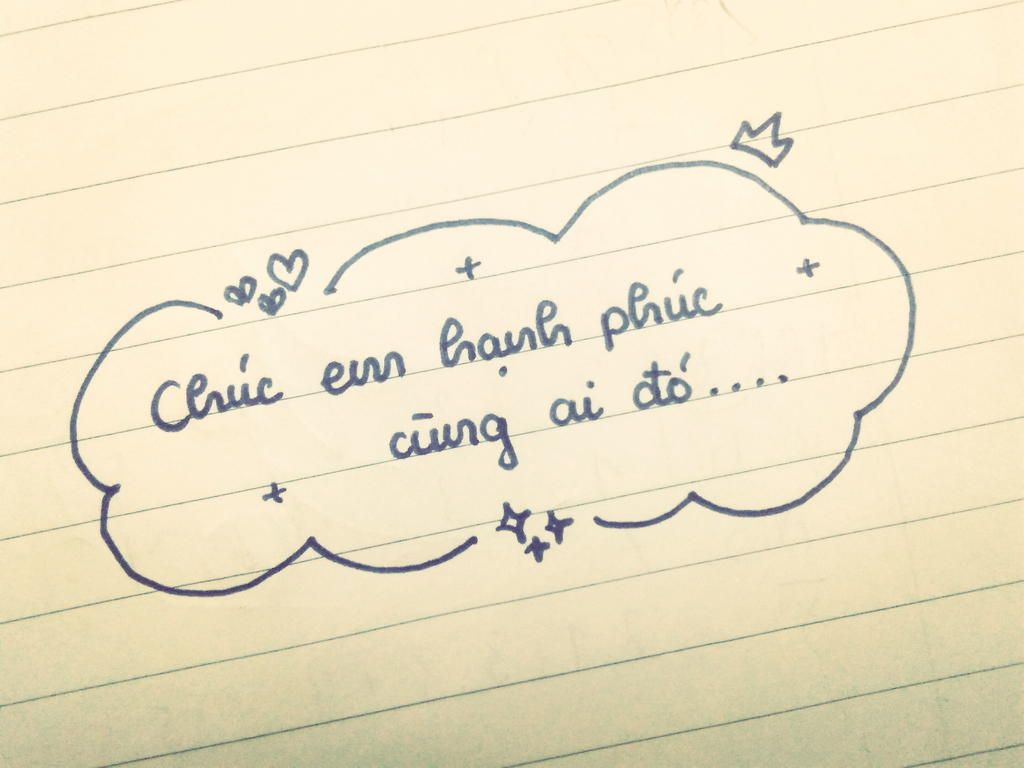 Chúc em hạnh phúc
cùng ai đó....